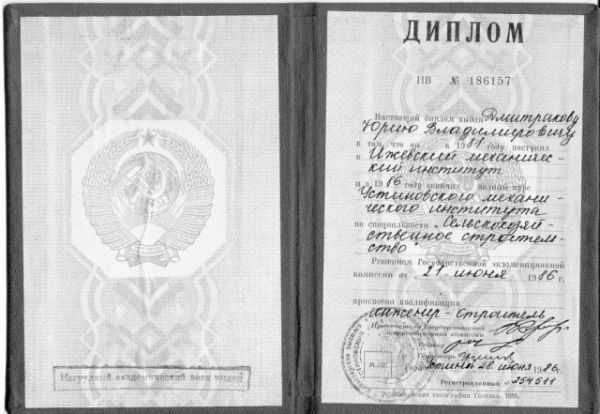 Нагрудный академический знак выдан
ДИПЛОМ
НВ № 186157
Настоящий диплом выдан Дмитракову
Юрию Владимировичу
в том, что он в 1981 году поступил
в Ижевский механичес-
кий институт
и в 1986 году окончил полный курс
Устиновского механи-
ческого института
по специальности „Сельскохозяй-
ственное строитель-
ство"
Решением Государственной экзаменационной
комиссии от 21 июня 1986 г.
присвоена квалификация
инженер-строитель
Председатель Государственной
экзаменационной комиссии
Ректор
Секретарь
Город Устинов 28 июня 1986 г.
Регистрационный № 254511
М.П.